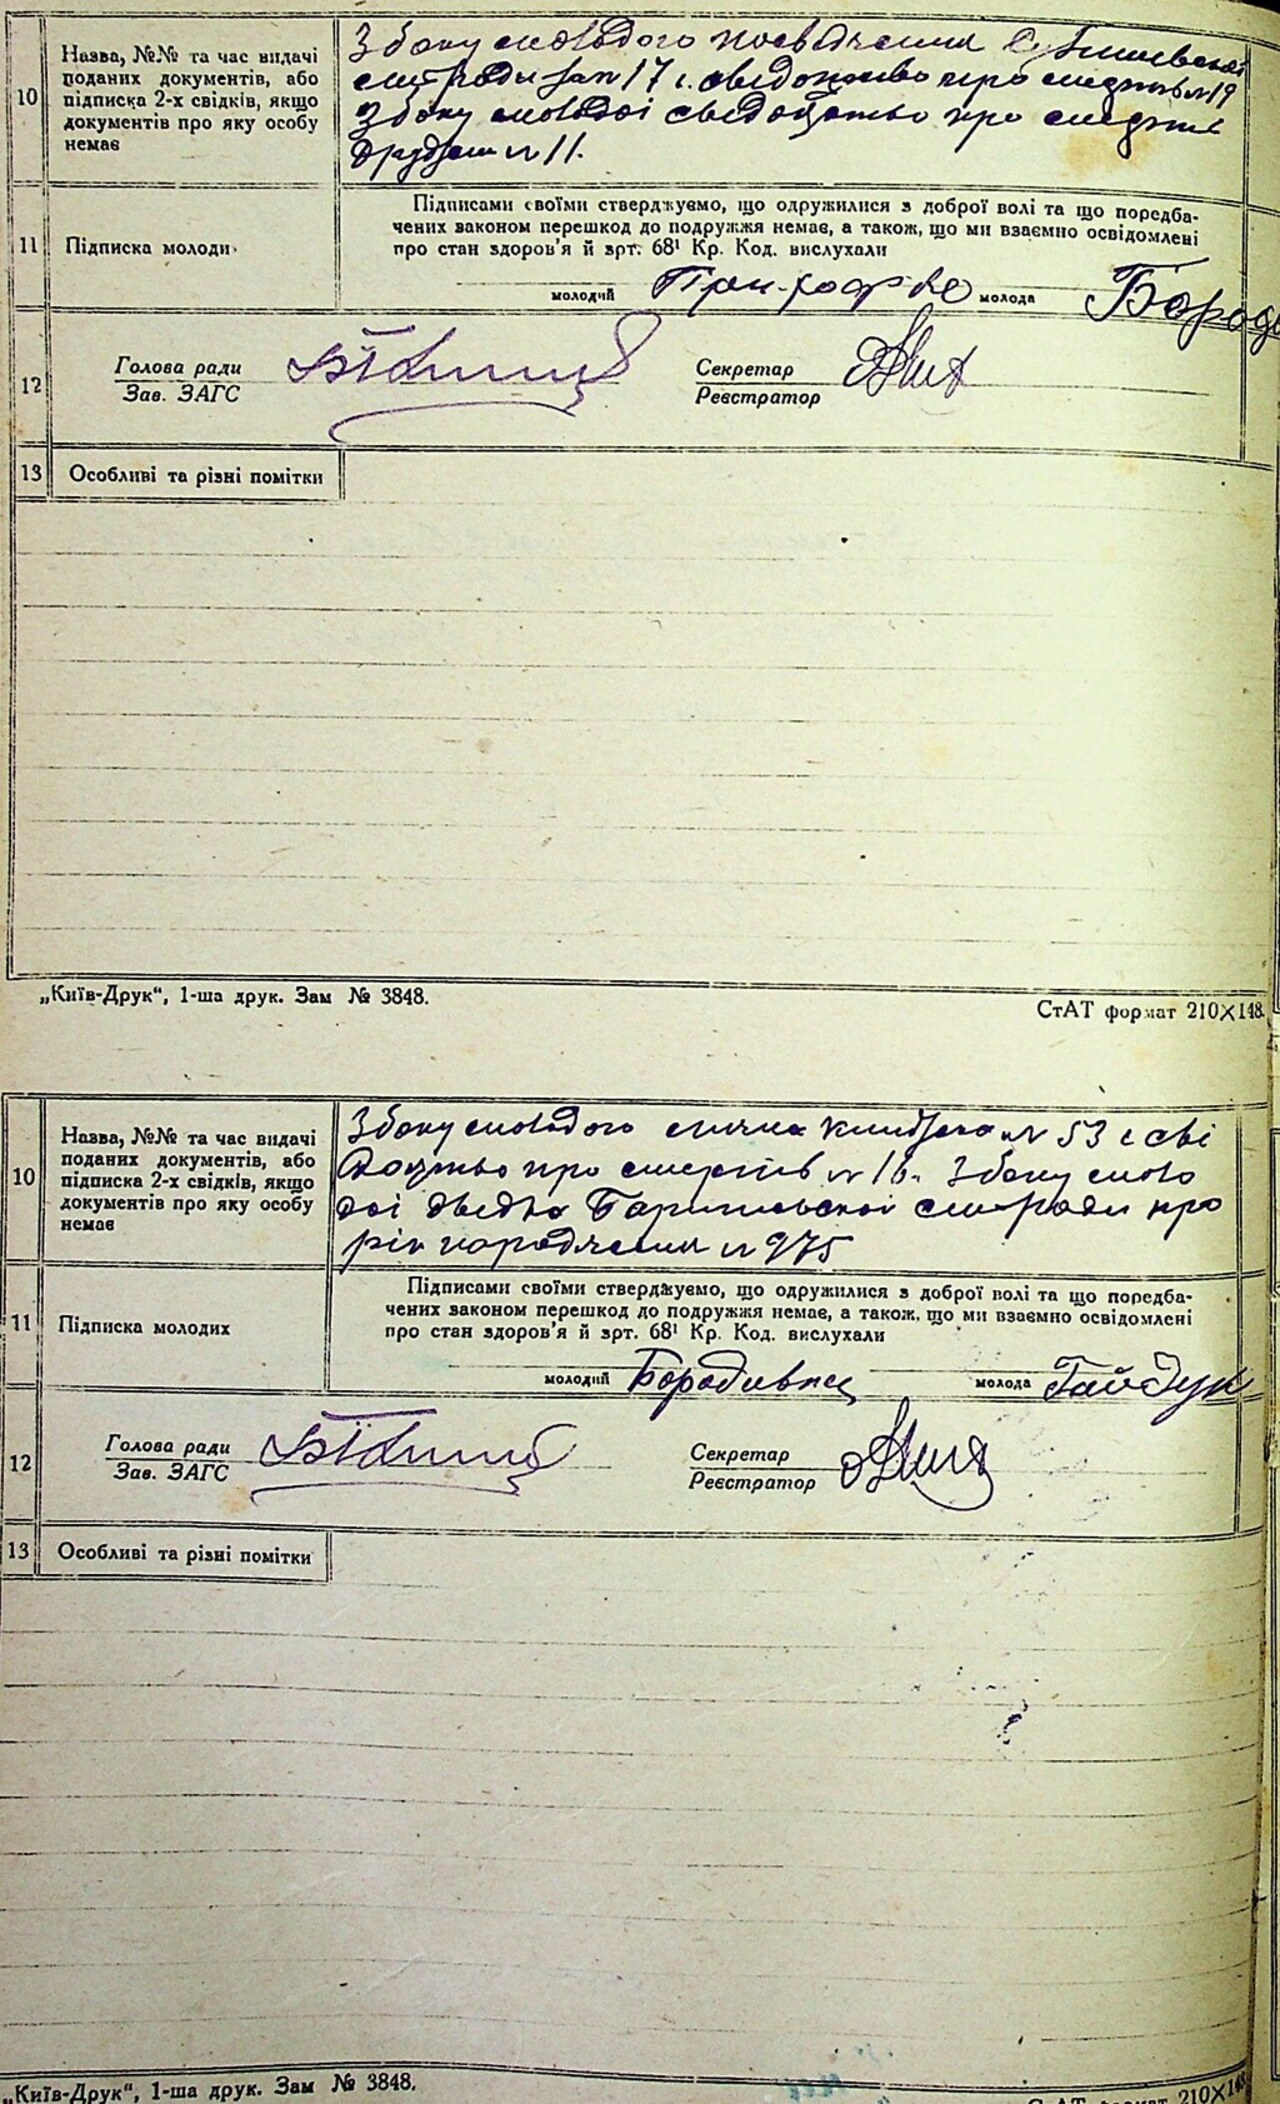 10
Назва, №№ та час видачі
поданих документів, або
підписка 2-х свідків, якщо
документів про яку особу
немає
З боку молодого посвідчення
сільради за № 17 і свідоцтво про смерть № 19
З боку молодої свідоцтво про смерть
№ 11.
11
Підписка молоди
Підписами своїми стверджуємо, що одружилися з доброї волі та що поредба-
чених законом перешкод до подружжя немає, а також, що ми взаємно освідомлені
про стан здоров'я й зрт. 68¹ Кр. Код. вислухали
молодий молода Бород
12
Голова ради
Зав. ЗАГС
Секретар
Реєстратор
13 Особливі та різні помітки
„Київ-Друк“, 1-ша друк. Зам № 3848.
СтАТ формат 210×148.
10
Назва, №№ та час видачі
поданих документів, або
підписка 2-х свідків, якщо
документів про яку особу
немає
З боку молодого № 53 і сві
доцтво про смерть № 16. З боку моло
дої сільради про
рік народження № 975
11
Підписка молодих
Підписами своїми стверджуємо, що одружилися з доброї волі та що поредба-
чених законом перешкод до подружжя немає, а також, що ми взаємно освідомлені
про стан здоров'я й зрт. 68¹ Кр. Код. вислухали
молодий молода Гайдук
12
Голова ради
Зав. ЗАГС
Секретар
Реєстратор
13 Особливі та різні помітки
„Київ-Друк“, 1-ша друк. Зам № 3848.
СтАТ формат 210×148